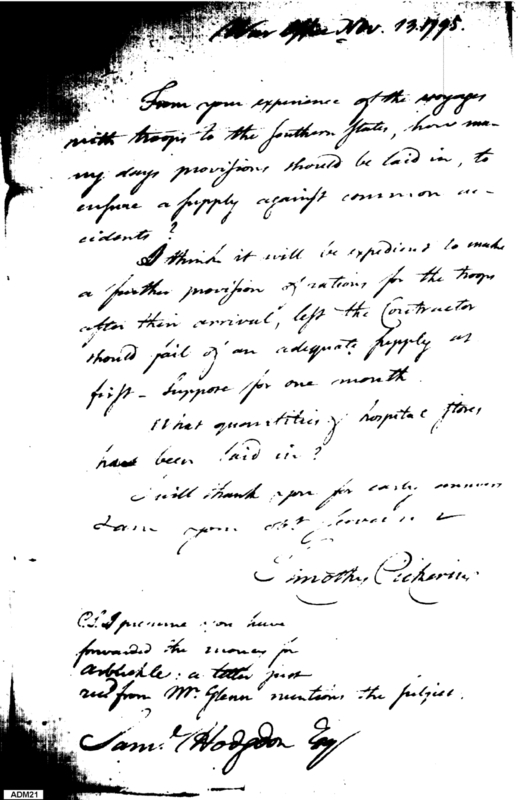 War Office Nov. 13. 1795.
From your experience of the voyages
with troops to the Southern States, how ma-
ny days provisions should be laid in, to
ensure a supply against common ac-
cidents?
I think it will be expedient to make
a further provision of rations for the troops
after their arrival, lest the Contractor
should fail of an adequate supply at
first - suppose for one month.
What quantities of hospital stores
have been laid in?
I will thank you for early answers
I am your obt servant
Timothy Pickering
P.S. I presume you have
forwarded the money for
a letter just
recd from Mr. Glenn mentions the subject.
Saml. Hodgdon Esq
ADM21